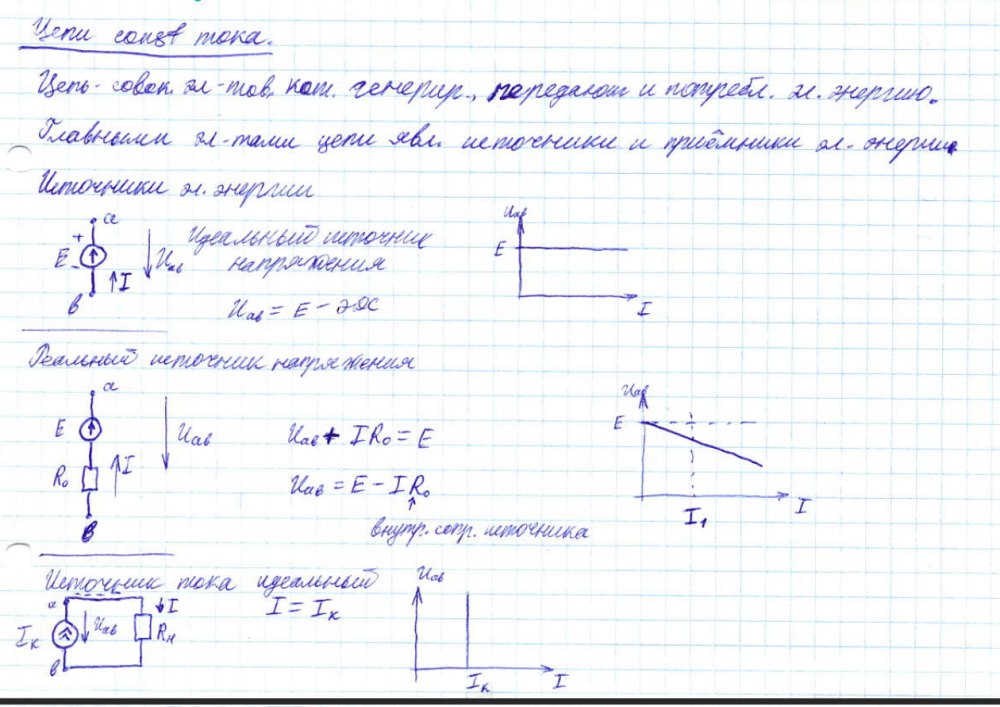 Цепи const тока.
Цепь - совок. эл-тов, кот. генерир., передают и потребл. эл. энергию.
Главными эл-тами цепи явл. источники и приёмники эл. энергии
Источники эл. энергии
a
+
E
-
I
b
Uab
Идеальный источник
напряжения
Uab = E - ЭДС
Uab
E
I
Реальный источник напряжения
a
E
R₀
I
b
Uab
Uab + IR₀ = E
Uab = E - IR₀
внутр. сопр. источника
Uab
E
I₁
I
Источник тока идеальный
a
Iк
b
Uab
I
Rн
I = Iк
Uab
Iк
I